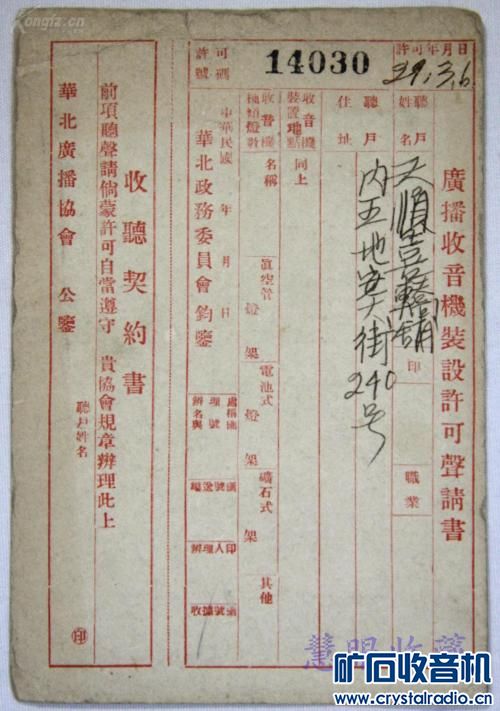 Kongfz.cn
許可年月日
29.3.6.
14030
許可
號碼
廣播收音機裝設許可聲請書
聽戶
姓名
印
職業
聽戶
住址
內五地安街240号
收音機
裝置地點
同上
收音機
名稱
真空管 燈 架
電池式 燈 架
礦石式 架
其他
中華民國 年 月 日
華北政務委員會鈞鑒
收聽契約書
前項聽聲請倘蒙許可自當遵守 貴協會規章辦理此上
聽戶姓名
印
華北廣播協會 公鑒
慧眼收藏
矿石收音机
www.crystalradio.cn